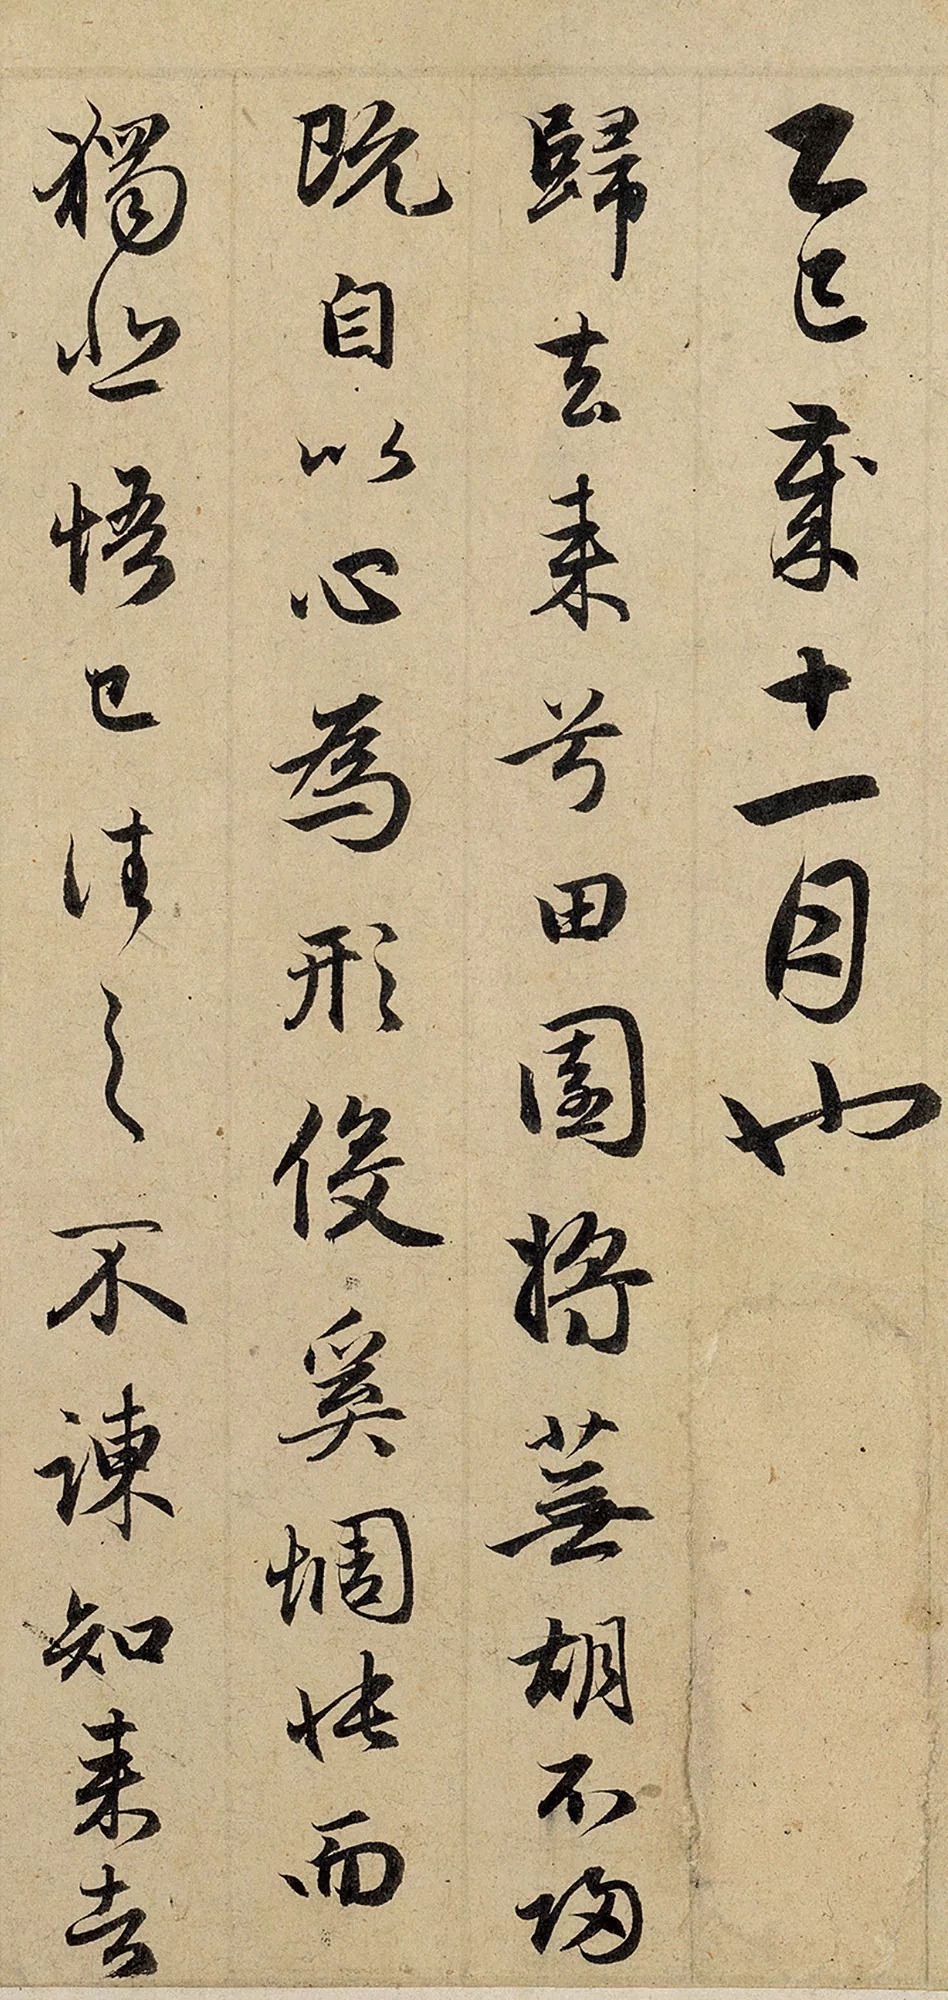 乙巳歲十一月也
歸去来兮田園將蕪胡不歸
既自以心為形役奚惆悵而
獨悲悟已往之不諫知来去